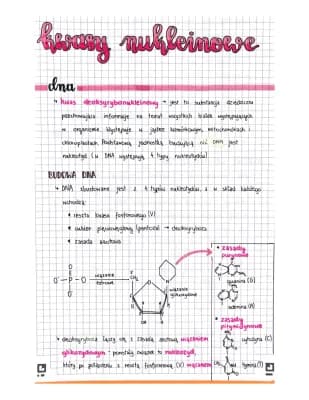 kwasy nukleinowe
dna
kwas deoksyrybonukleinowy → jest to substancja dziedziczna
przechowująca informacje na temat wszystkich białek występujących
w organizmie. Występuje w jądrze komórkowym, mitochondriach i
chloroplastach. Podstawową jednostką budulcową nici DNA jest
nukleotyd (w DNA występują 4 typy nukleotydów)
BUDOWA DNA
DNA zbudowane jest z 4 typów nukleotydów, a w skład każdego
wchodzą:
• reszta kwasu fosforowego (V)
• cukier pięciowęglowy (pentoza) → deoksyryboza
• zasada azotowa
• zasady
purynowe
guanina (G)
adenina (A)
• zasady
pirymidynowe
cytozyna (C)
tymina (T)
wiązanie
estrowe
wiązanie
glikozydowe
deoksyryboza łączy się z zasadą azotową wiązaniem
glikozydowym - powstały związek to nukleozyd,
który po połączeniu z resztą fosforanową (V) wiązaniem